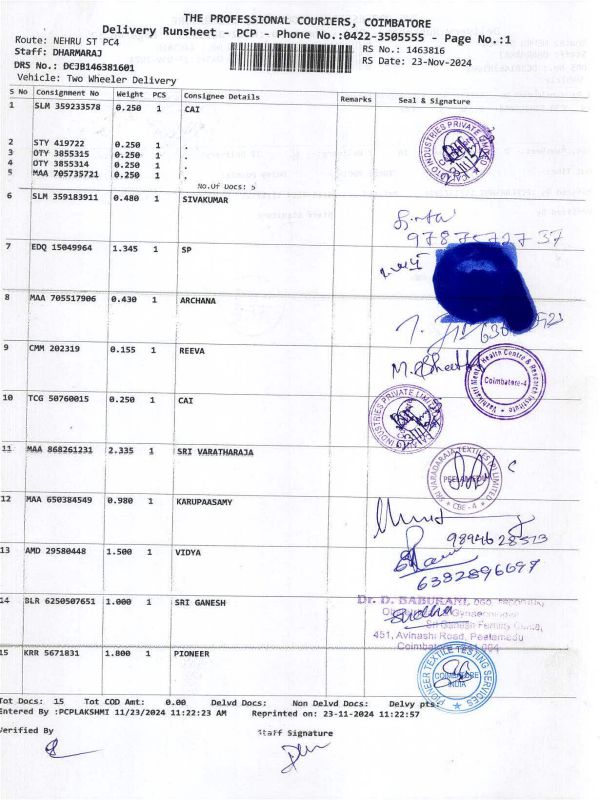 THE PROFESSIONAL COURIERS, COIMBATORE
Delivery Runsheet - PCP - Phone No.:0422-3505555 - Page No.:1
Route: NEHRU ST PC4
RS No.: 1463816
Staff: DHARMARAJ
RS Date: 23-Nov-2024
DRS No.: DCJB146381601
Vehicle: Two Wheeler Delivery
S No Consignment No Weight PCS Consignee Details Remarks Seal & Signature
1 SLM 359233578 0.250 1 CAI
2 STY 419722 0.250 1 .
3 OTY 3855315 0.250 1 .
4 OTY 3855314 0.250 1 .
5 MAA 705735721 0.250 1 .
No.Of Docs: 5
6 SLM 359183911 0.480 1 SIVAKUMAR
7 EDQ 15049964 1.345 1 SP
8 MAA 705517906 0.430 1 ARCHANA
9 CMM 202319 0.155 1 REEVA
Coimbatore-4
10 TCG 50760015 0.250 1 CAI
INDUSTRIES PRIVATE LIMITED
11 MAA 868261231 2.335 1 SRI VARATHARAJA
PEELAMEDU
CBE - 4
12 MAA 650384549 0.980 1 KARUPAASAMY
9894628523
13 AMD 29580448 1.500 1 VIDYA
6382896697
14 BLR 6250507651 1.000 1 SRI GANESH
Dr. D. BABURANI,
Sudha
451, Avinashi Road, Peelamedu
15 KRR 5671831 1.800 1 PIONEER
PIONEER TEXTILE TESTING SERVICES
COIMBATORE
INDIA
Tot Docs: 15 Tot COD Amt: 0.00 Delvd Docs: Non Delvd Docs: Delvy pts:
Entered By :PCPLAKSHMI 11/23/2024 11:22:23 AM Reprinted on: 23-11-2024 11:22:57
Verified By
Staff Signature